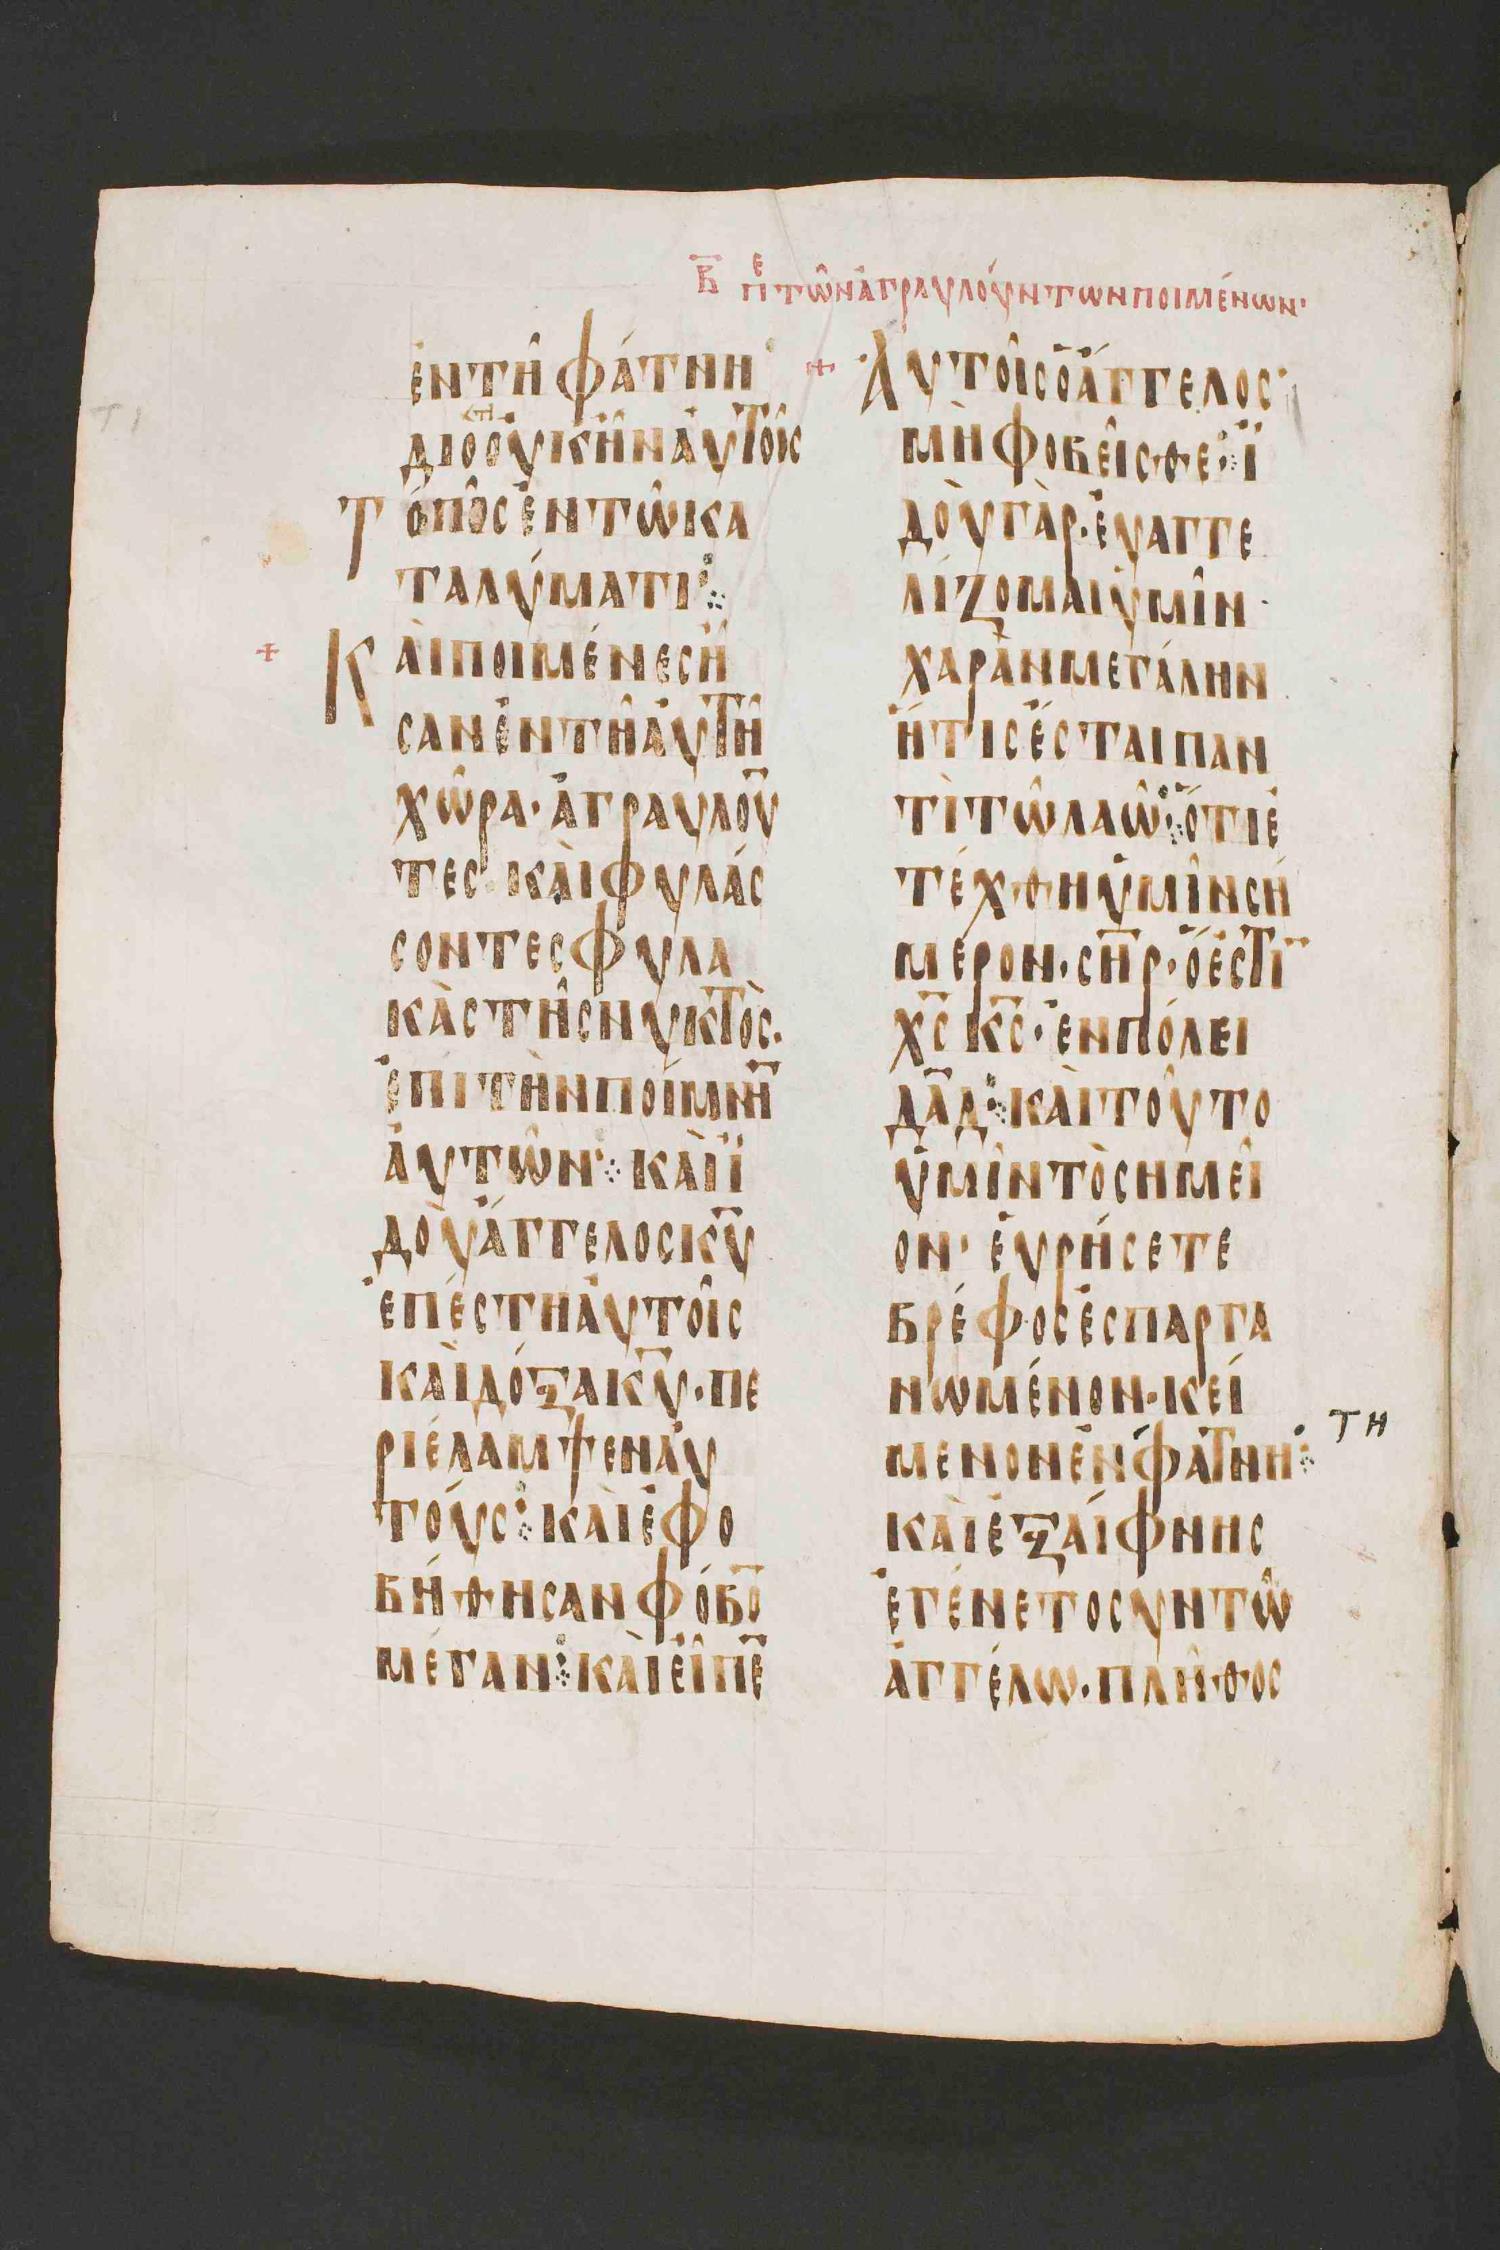 Β̅ πε τῶν ἀγραυλούντων ποιμένων·
ἐν τῇ φάτνῃ
διο ὁτι οὐκ ἦν ἀυτοῖς
τόπος ἐν τῶ κα
ταλύματι ⁘
+ Καὶ ποιμένες ἦ
σαν ἐν τῆ ἀυτῆ
χῶρα· ἀγραυλοῦ̅
τες· καὶ φυλάς
σοντες φυλα
κὰς τῆς νυκτὸς·
ἐπὶ τὴν ποίμνη̅
ἀυτῶν ⁘ καὶ ἰ
δοὺ ἄγγελος κ̅υ̅
ἐπέστη ἀυτοῖς
καὶ δόξα κ̅υ̅· πε
ριέλαμψεν ἀυ
τούς ⁘ καὶ ἐφο
βήθησαν φόβο̅
μέγαν ⁘ καὶ εἶπε̅
+ Ἀυτοῖς ὁ ἄγγελος·
μὴ φοβεῖσθε ⁘ ἰ
δοὺ γὰρ· ἐυαγγε
λίζομαι ὑμῖν·
χαρὰν μεγάλην
ἥτις ἔσται παν
τὶ τῶ λαῶ ⁘ ὅτι ἐ
τέχθη ὑμῖν σή
μερον· σ̅η̅ρ̅· ὅ ἐστι̅
χ̅ς̅ κ̅ς̅· ἐν πόλει
δ̅α̅δ̅ ⁘ καὶ τοῦτο
ὑμῖν τὸ σημεῖ
ον· ἑυρήσετε
βρέφος ἐσπαργα
νωμένον· κεί
μενον ἐν φάτνη ⁘ τη
καὶ ἐξαίφνης
ἐγένετο σὺν τῶ
ἀγγέλω· πλῆθος